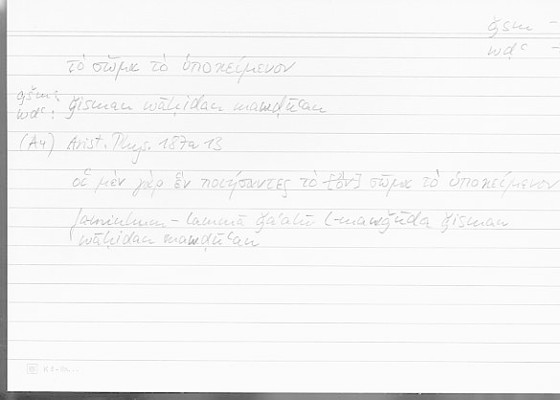 ǧsm -
wḍʿ -
τὸ σῶμα τὸ ὑποκείμενον
ǧsm:
wḍʿ: ǧisman wāḥidan mawḍūʿan
(Au) Arist. Phys. 187a13
οἱ μὲν γὰρ ἓν ποιήσαντες τὸ [ὂν] σῶμα τὸ ὑποκείμενον
fa-minhum - lammā ǧaʿalū l-mawǧūda ǧisman
wāḥidan mawḍūʿan